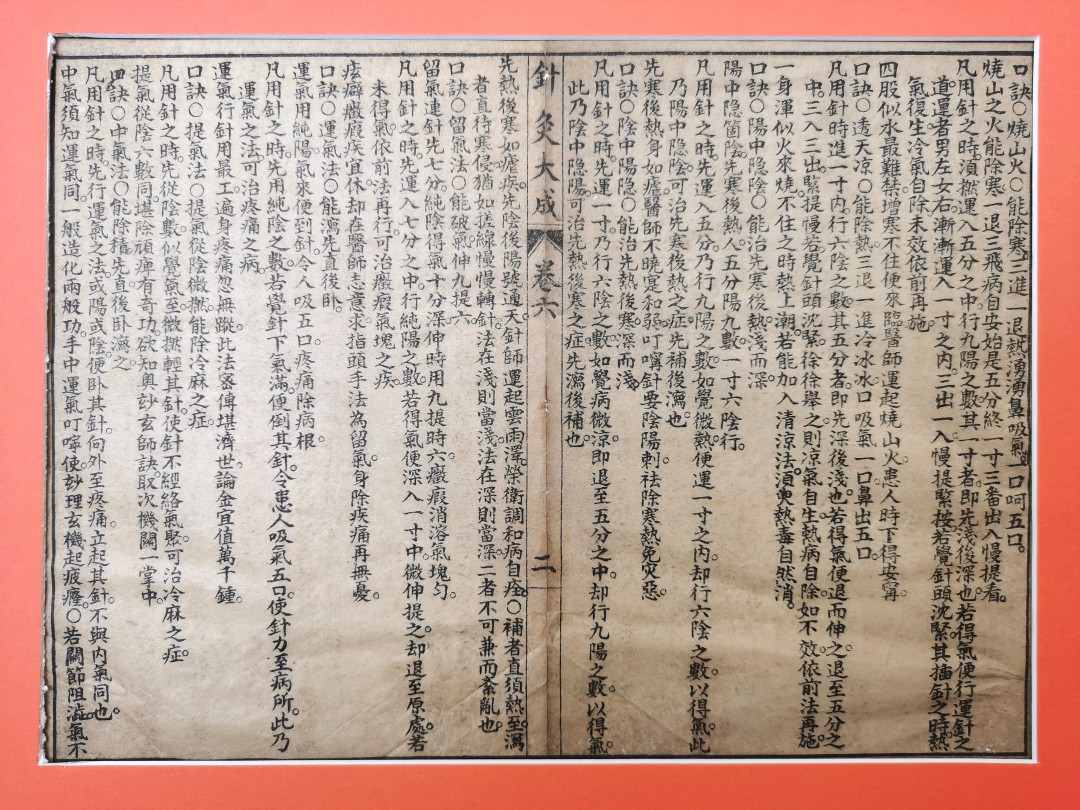 口訣○燒山火○能除寒三進一退熱湧湧鼻吸氣一口呵五口。
燒山之火能除寒一退三飛病自安始是五分終一寸三番出入慢提看。
凡用針之時須撚運入五分之中行九陽之數其一寸者即先淺後深也若得氣便行運針之
道運者男左女右漸漸運入一寸之內三出一入慢提緊按若覺針頭沈緊其插針之時熱
氣復生冷氣自除未效依前再施
四股似水最難禁增寒不住便來臨醫師運起燒山火患人時下得安寧
口訣○透天涼○能除熱三退一進冷冰冰口吸氣一口鼻出五口
凡用針時進一寸內行六陰之數其五分者即先深後淺也若得氣便退而伸之退至五分之
中三入三出緊提慢若覺針頭沈緊徐徐舉之則涼氣自生熱病自除如不效依前法再施。
一身渾似火來燒不住之時熱上潮若能加入清涼法須臾熱毒自然消。
口訣○陽中隱陰○能治先寒後熱淺而深
陽中隱箇陰先寒後熱人五分陽九數一寸六陰行。
凡用針之時先運入五分乃行九陽之數如覺微熱便運一寸之內却行六陰之數以得氣此
乃陽中隱陰可治先寒後熱之症先補後瀉也
先寒後熱身如瘧醫師不曉寔和弱叮嚀針要陰陽剌祛除寒熱免灾惡
口訣○陰中陽隐○能治先熱後寒深而淺。
凡用針之時先運一寸乃行六陰之數如覺病微涼即退至五分之中却行九陽之數以得氣
此乃陰中隐陽可治先熱後寒之症先瀉後補也
針灸大成 卷六 二
先熱後寒如瘧疾先陰後陽號通天針師運起雲雨澤榮衛調和病自痊○補者直須熱至瀉
者直待寒侵猶如搓線慢慢轉針法在淺則當淺法在深則當深二者不可兼而紊亂也
口訣○留氣法○能破氣伸九提六
留氣運針先七分純陰得氣十分深伸時用九提時六癥瘕消溶氣塊勻
凡用針之時先運入七分之中行純陽之數若得氣便深入一寸中微伸提之却退至原處若
未得氣依前法再行可治癥瘕氣塊之疾
痃癖癥瘕疾宜休却在醫師志意求指頭手法為留氣身除疾痛再無憂
口訣○運氣法○能瀉先直後卧
運氣用純陽氣來便到針令人吸五口疼痛除病根
凡用針之時先用純陰之數若覺針下氣滿便倒其針令患人吸氣五口使針力至病所此乃
運氣之法可治疼痛之病
運氣行針用最工遍身疼痛忽無蹤此法密傳堪濟世論金宜值萬千鍾
口訣○提氣法○提氣從陰微撚能除冷麻之症
凡用針之時先從陰數似覺氣至微撚輕其針使針不經絡氣聚可治冷麻之症
提氣從陰六數同堪除頑痺有奇功欲知奧妙玄師訣取次機關一掌中
口訣○中氣法○能除積先直後卧瀉之
凡用針之時先行運氣之法或陽或陰便卧其針向外至疼痛立起其針不與內氣同也
中氣須知運氣同一般造化兩般功手中運氣叮嚀使妙理玄機起疲癃○若關節阻澁氣不